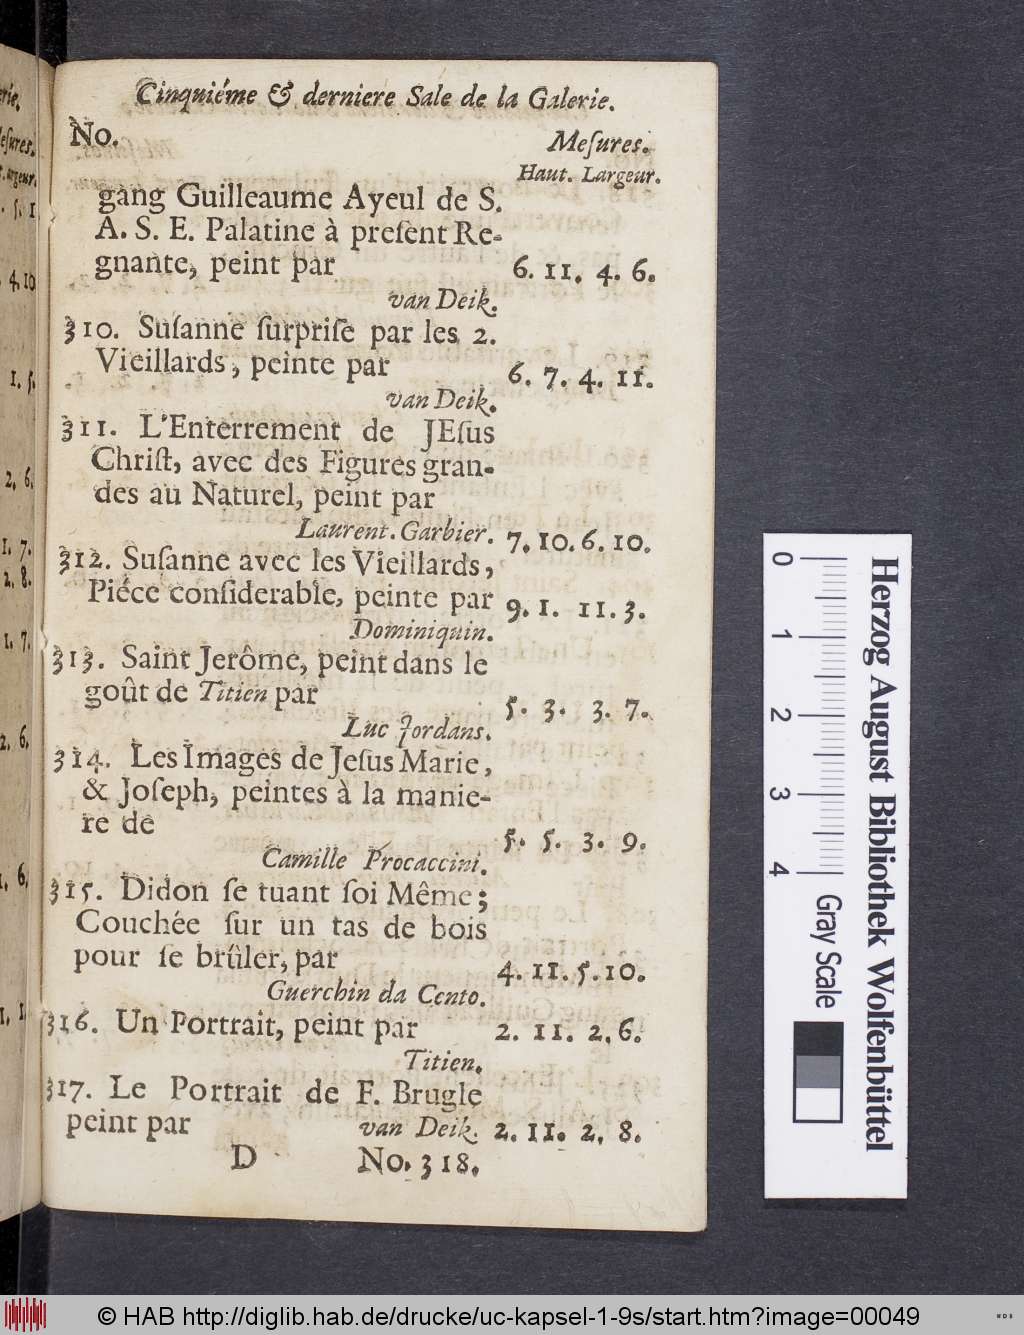 Cinquiéme & derniere Sale de la Galerie.
No.
Meſures.
Haut. Largeur.
gang Guilleaume Ayeul de S.
A. S. E. Palatine à preſent Re-
gnante, peint par 6. 11. 4. 6.
van Deik.
310. Suſanne ſurpriſe par les 2.
Vieillards, peinte par 6. 7. 4. 11.
van Deik.
311. L'Enterrement de JEſus
Chriſt, avec des Figures gran-
des au Naturel, peint par
Laurent. Garbier. 7. 10. 6. 10.
312. Suſanne avec les Vieillards,
Piéce conſiderable, peinte par 9. 1. 11. 3.
Dominiquin.
313. Saint Jerôme, peint dans le
goût de Titien par 5. 3. 3. 7.
Luc Jordans.
314. Les Images de Jeſus Marie,
& Joſeph, peintes à la manie-
re de 5. 5. 3. 9.
Camille Procaccini.
315. Didon ſe tuant ſoi Même;
Couchée ſur un tas de bois
pour ſe brûler, par 4. 11. 5. 10.
Guerchin da Cento.
316. Un Portrait, peint par 2. 11. 2. 6.
Titien.
317. Le Portrait de F. Brugle
peint par van Deik. 2. 11. 2. 8.
D No. 318.
erie.
leſures.
. argeur.
. 5. 1
. 4. 10
1. 5.
2. 6.
1. 7.
2. 8.
1. 7.
2. 6.
1. 6.
1. 1.
0 1 2 3 4
Gray Scale
Herzog August Bibliothek Wolfenbüttel
© HAB http://diglib.hab.de/drucke/uc-kapsel-1-9s/start.htm?image=00049